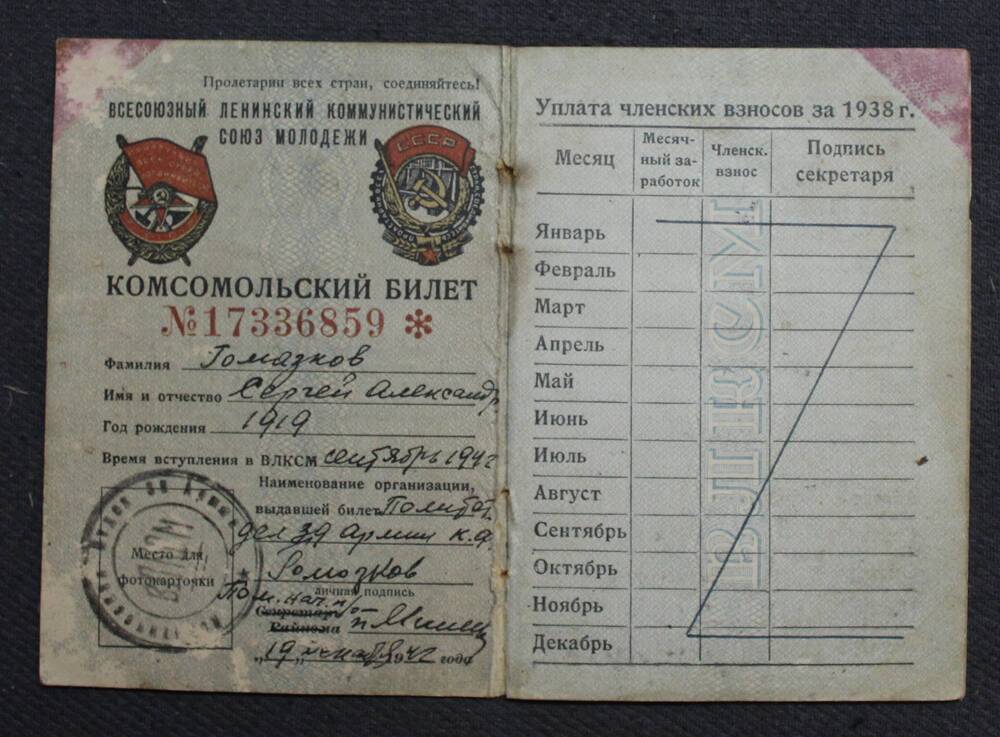 Пролетарии всех стран, соединяйтесь!
ВСЕСОЮЗНЫЙ ЛЕНИНСКИЙ КОММУНИСТИЧЕСКИЙ
СОЮЗ МОЛОДЕЖИ
СССР
КОМСОМОЛЬСКИЙ БИЛЕТ
№17336859 *
Фамилия Гомазков
Имя и отчество Сергей Александр.
Год рождения 1919
Время вступления в ВЛКСМ сентябрь 1942
Наименование организации,
выдавшей билет Политот
дел 39 армии к.ф.
Место для
фотокарточки
ВЛКСМ
Гомозков
личная подпись
Пом. нач. п/от
Секретарь
Райкома
"19" 1942 года
Уплата членских взносов за 1938 г.
Месяц
Месяч-
ный за-
работок
Членск.
взнос
Подпись
секретаря
Январь
Февраль
Март
Апрель
Май
Июнь
Июль
Август
Сентябрь
Октябрь
Ноябрь
Декабрь
ВЛКСМ